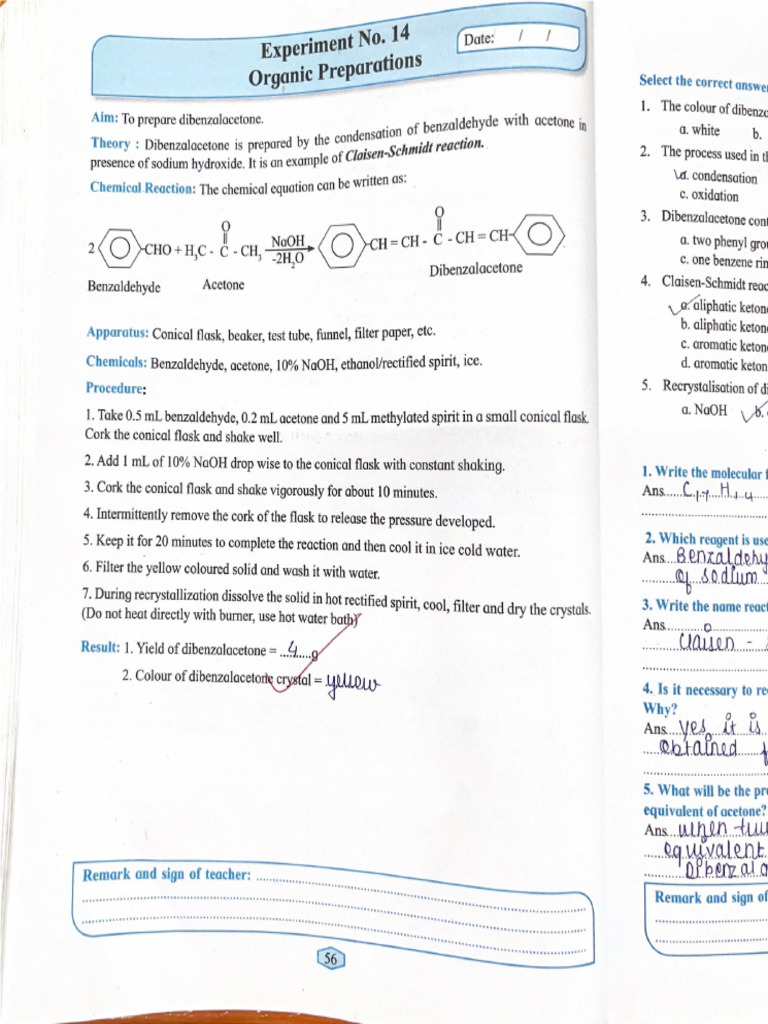 Experiment No. 14
Organic Preparations
Date: / /
Aim: To prepare dibenzalacetone.
Theory : Dibenzalacetone is prepared by the condensation of benzaldehyde with acetone in
presence of sodium hydroxide. It is an example of Claisen-Schmidt reaction.
Chemical Reaction: The chemical equation can be written as:
O
O
2 CHO + H3C - C - CH3 NaOH CH = CH - C - CH = CH
-2H2O
Benzaldehyde Acetone Dibenzalacetone
Apparatus: Conical flask, beaker, test tube, funnel, filter paper, etc.
Chemicals: Benzaldehyde, acetone, 10% NaOH, ethanol/rectified spirit, ice.
Procedure:
1. Take 0.5 mL benzaldehyde, 0.2 mL acetone and 5 mL methylated spirit in a small conical flask.
Cork the conical flask and shake well.
2. Add 1 mL of 10% NaOH drop wise to the conical flask with constant shaking.
3. Cork the conical flask and shake vigorously for about 10 minutes.
4. Intermittently remove the cork of the flask to release the pressure developed.
5. Keep it for 20 minutes to complete the reaction and then cool it in ice cold water.
6. Filter the yellow coloured solid and wash it with water.
7. During recrystallization dissolve the solid in hot rectified spirit, cool, filter and dry the crystals.
(Do not heat directly with burner, use hot water bath)
Result: 1. Yield of dibenzalacetone = ...4...g
2. Colour of dibenzalacetone crystal = yellow
Remark and sign of teacher:
56
Select the correct answer
1. The colour of dibenza
a. white b.
2. The process used in th
a. condensation
c. oxidation
3. Dibenzalacetone cont
a. two phenyl grou
c. one benzene rin
4. Claisen-Schmidt reac
a. aliphatic ketone
b. aliphatic ketone
c. aromatic ketone
d. aromatic keton
5. Recrystalisation of di
a. NaOH b.
1. Write the molecular f
Ans. C17 H14
2. Which reagent is use
Ans. Benzaldehy
of sodium
3. Write the name react
Ans.
Claisen -
4. Is it necessary to re
Why?
Ans. yes it is
obtained
5. What will be the pro
equivalent of acetone?
Ans. when
equivalent
Dibenzala
Remark and sign of